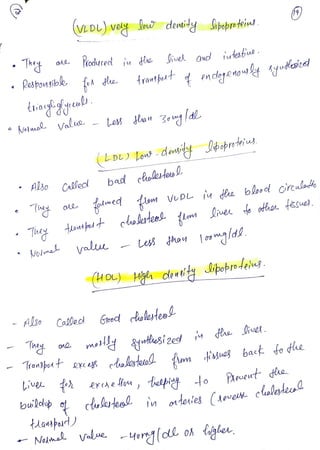 (19)
(VLDL) very low density lipoproteins.
• They are Produced in the liver and intestine.
• Responsible for the transport of endogenously synthesized
triacylglycerol.
• Normal value - Less than 30mg/dl
(LDL) Low-density lipoproteins.
• Also Called bad cholesterol.
• They are formed from VLDL in the blood circulation
• They transport cholesterol from liver to other tissues.
• Normal value - Less than 100mg/dl.
(HDL) High density lipoproteins.
- Also Called Good cholesterol
- They are mostly synthesized in the liver.
- Transport excess cholesterol from tissues back to the
Liver for excretion, helping to Prevent the
buildup of cholesterol in arteries (reverse cholesterol
transport)
- Normal value - 40mg/dl or higher.